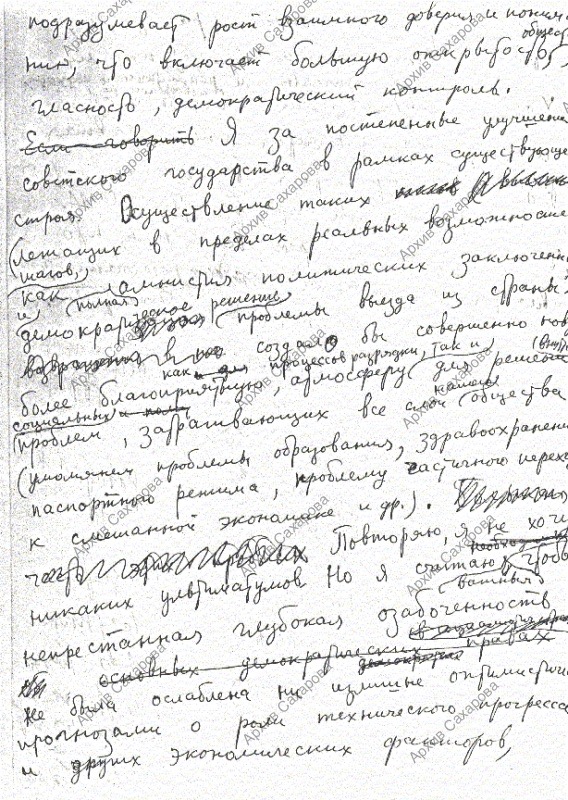 подразумевает рост взаимного доверия и понима-
ния, что включает большую открытость общества,
гласность, демократический контроль.
Если говорить Я за постепенные улучшения
советского государства в рамках существующего
строя. Осуществление таких
(лежащих в пределах реальных возможностей)
шагов,
как амнистия политических заключенных
и полное решение
демократическое проблемы выезда из страны
создало бы совершенно новую
как процессов разрядки, так и
более благоприятную, атмосферу для решения
социальных
проблем, затрагивающих все слои нашего общества
(упомянем проблемы образования, здравоохранения
паспортного режима, проблему частичного перехода
к смешанной экономике и др.).
Повторяю, я не хочу
никаких ультиматумов. Но я считаю важным, чтобы
непрестанная глубокая озабоченность
основных демократических правах
не была ослаблена ни излишне оптимистич
прогнозами о роли технического прогресса
и других экономических факторов,
Архив Сахарова